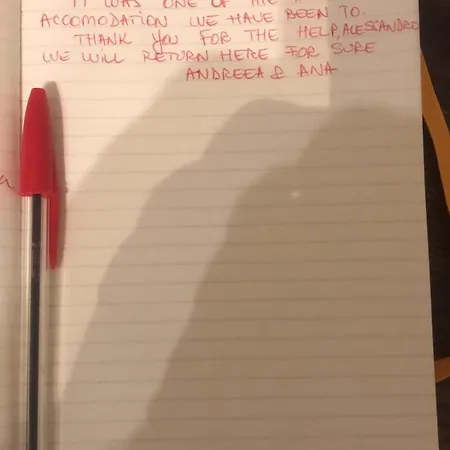 IT WAS ONE OF THE
ACCOMODATION WE HAVE BEEN TO.
THANK YOU FOR THE HELP, ALESSANDRO
WE WILL RETURN HERE FOR SURE
ANDREEA & ANA